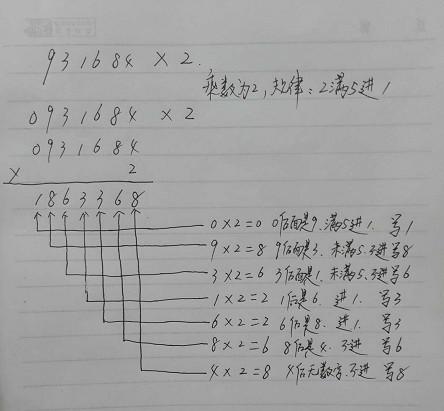 931684 × 2.
乘数为2,规律:2满5进1
0931684 × 2
0931684
× 2
1863368
0×2=0 0后面是9.满5进1. 写1
9×2=8 9后面是3.未满5.不进写8
3×2=6 3后面是1.未满5.不进写6
1×2=2 1后是6.进1.写3
6×2=2 6后是8.进1.写3
8×2=6 8后是4.不进 写6
4×2=8 4后无数字.不进 写8